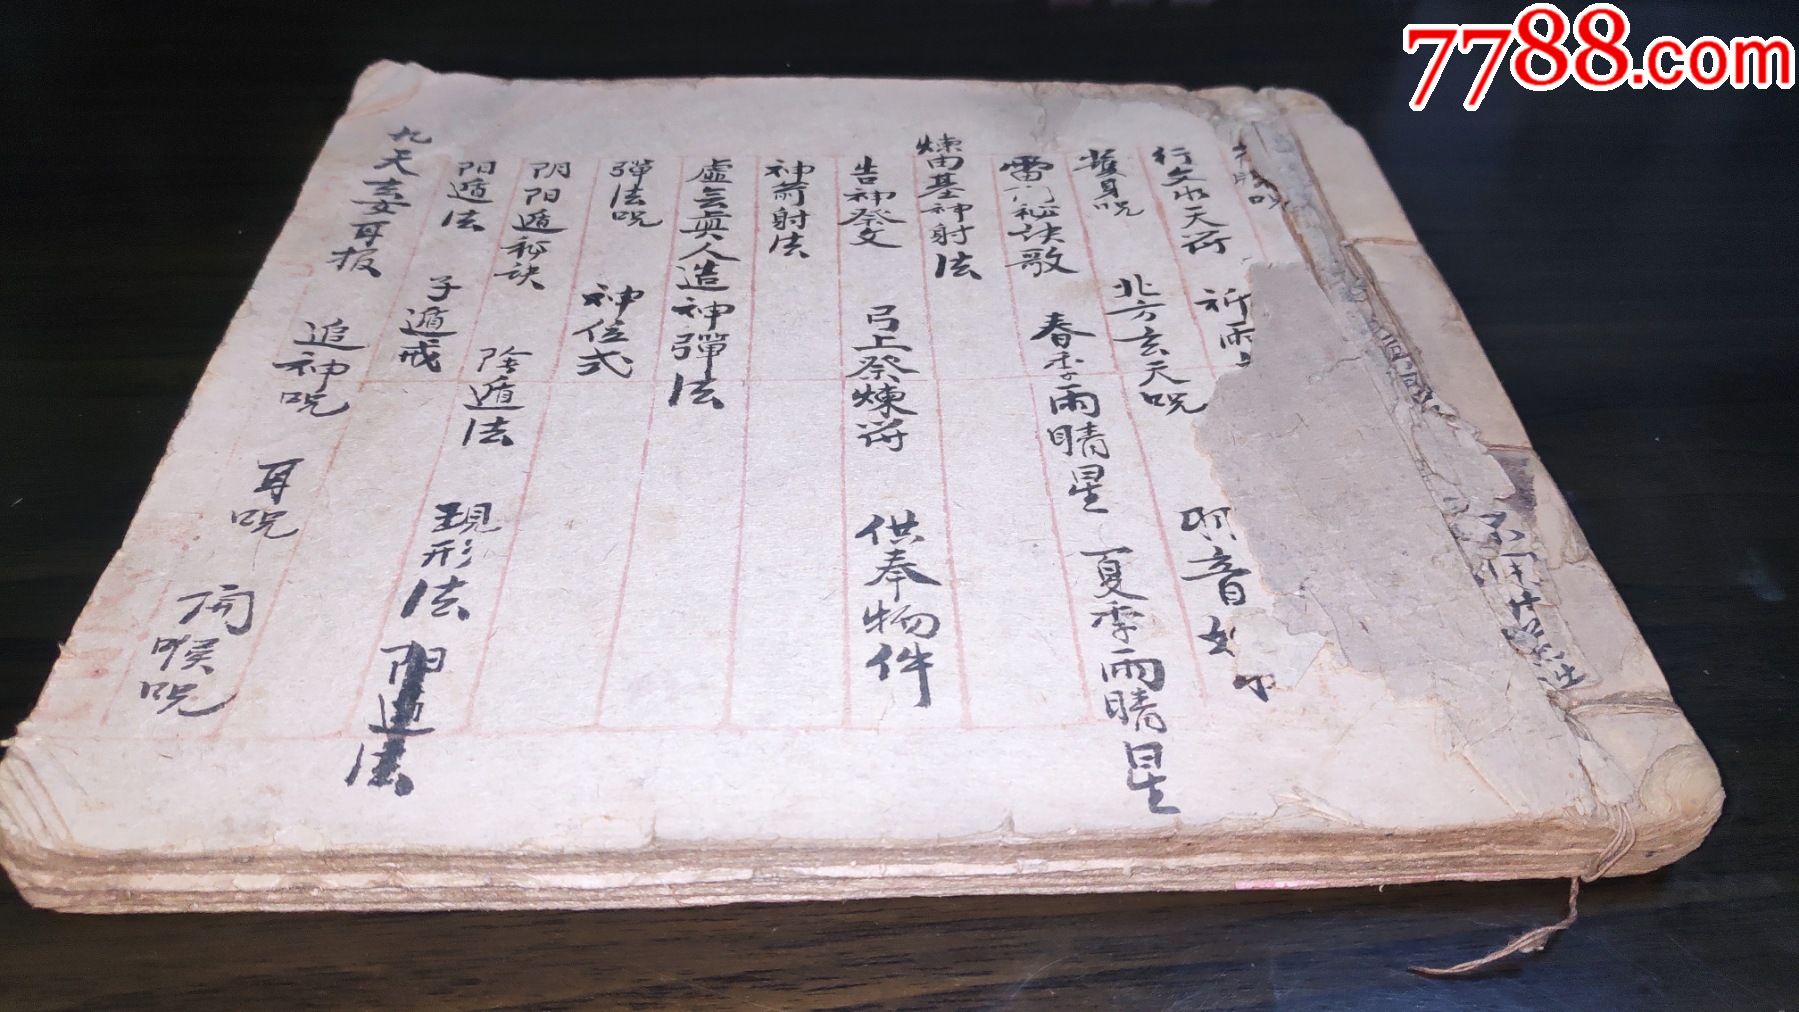 7788.com
行文水天符 祈雨
護身咒 北方玄天咒 音
雷门秘诀歌 春季雨晴星 夏季雨晴星
煉由基神射法
告神祭文 弓上祭煉符 供奉物件
神箭射法
虛玄真人造神彈法
彈法咒 神位式
阴阳遁秘诀 陰遁法 現形法 阳遁法
阳遁法 子遁戒
九天玄女耳报 追神咒 耳咒 開喉咒